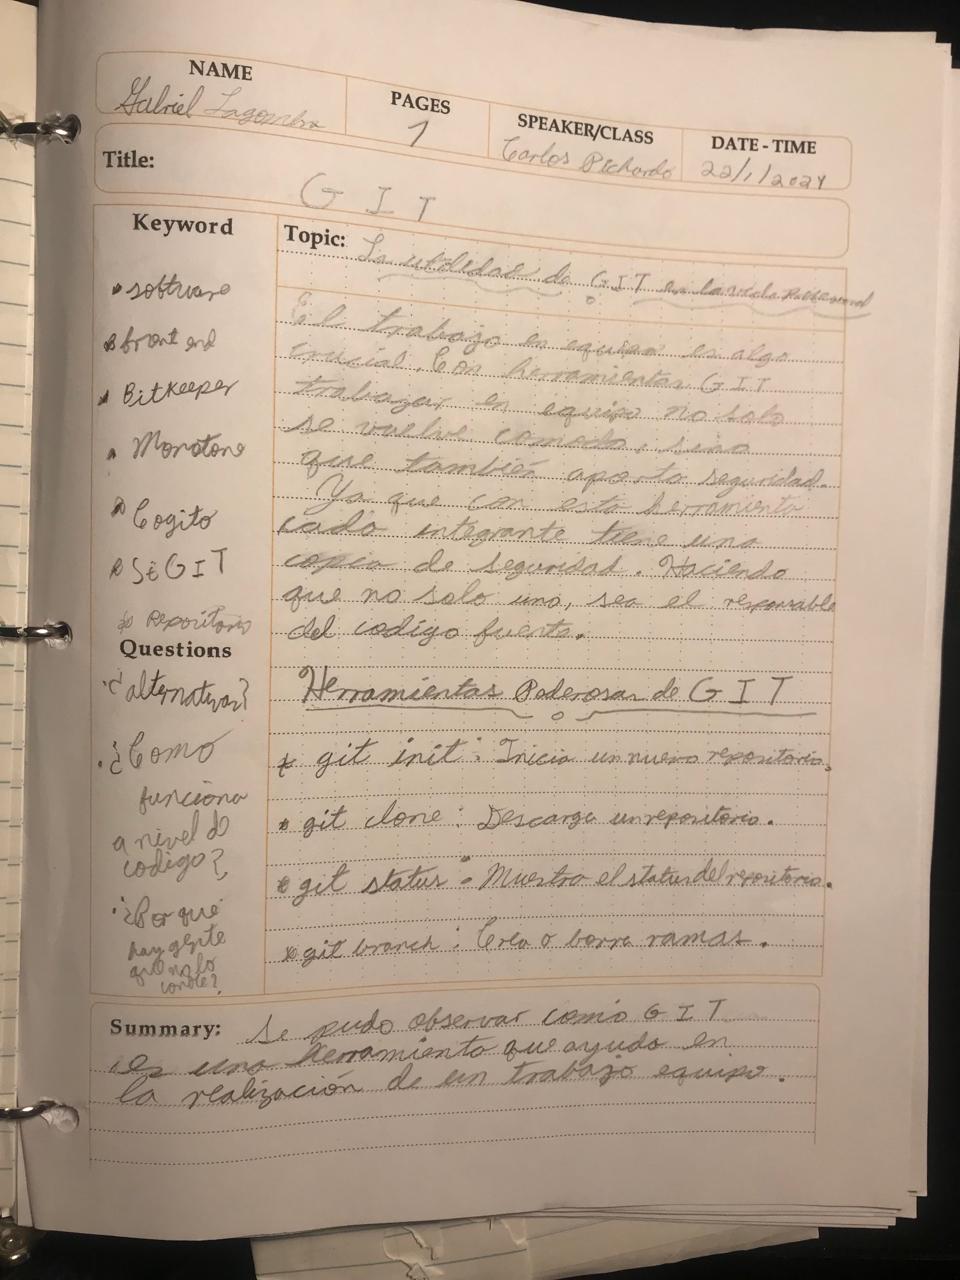 NAME
Gabriel Lagombra
PAGES
1
SPEAKER/CLASS
Carlos Pichardo
DATE - TIME
22/1/2024
Title:
GIT
Keyword
software
front end
Bitkeeper
Monotone
Cogito
SEGIT
Repositorio
Questions
¿alternativas?
¿Como
funciona
a nivel de
codigo?
¿Por que
hay gente
que no lo
conoce?
Topic: La utilidad de GIT en la vida profesional
El trabajo en equipo es algo
crucial. Con herramientas GIT
trabajar en equipo no solo
se vuelve comodo, sino
que también aporta seguridad.
Ya que con esta herramienta
cada integrante tiene una
copia de seguridad. Haciendo
que no solo uno, sea el responsable
del codigo fuente.
Herramientas Poderosas de GIT
* git init: Inicia un nuevo repositorio.
* git clone: Descarga un repositorio.
* git status: Muestra el status del repositorio.
* git branch: Crea o borra ramas.
Summary: Se pudo observar como GIT
es una herramienta que ayuda en
la realización de un trabajo equipo.